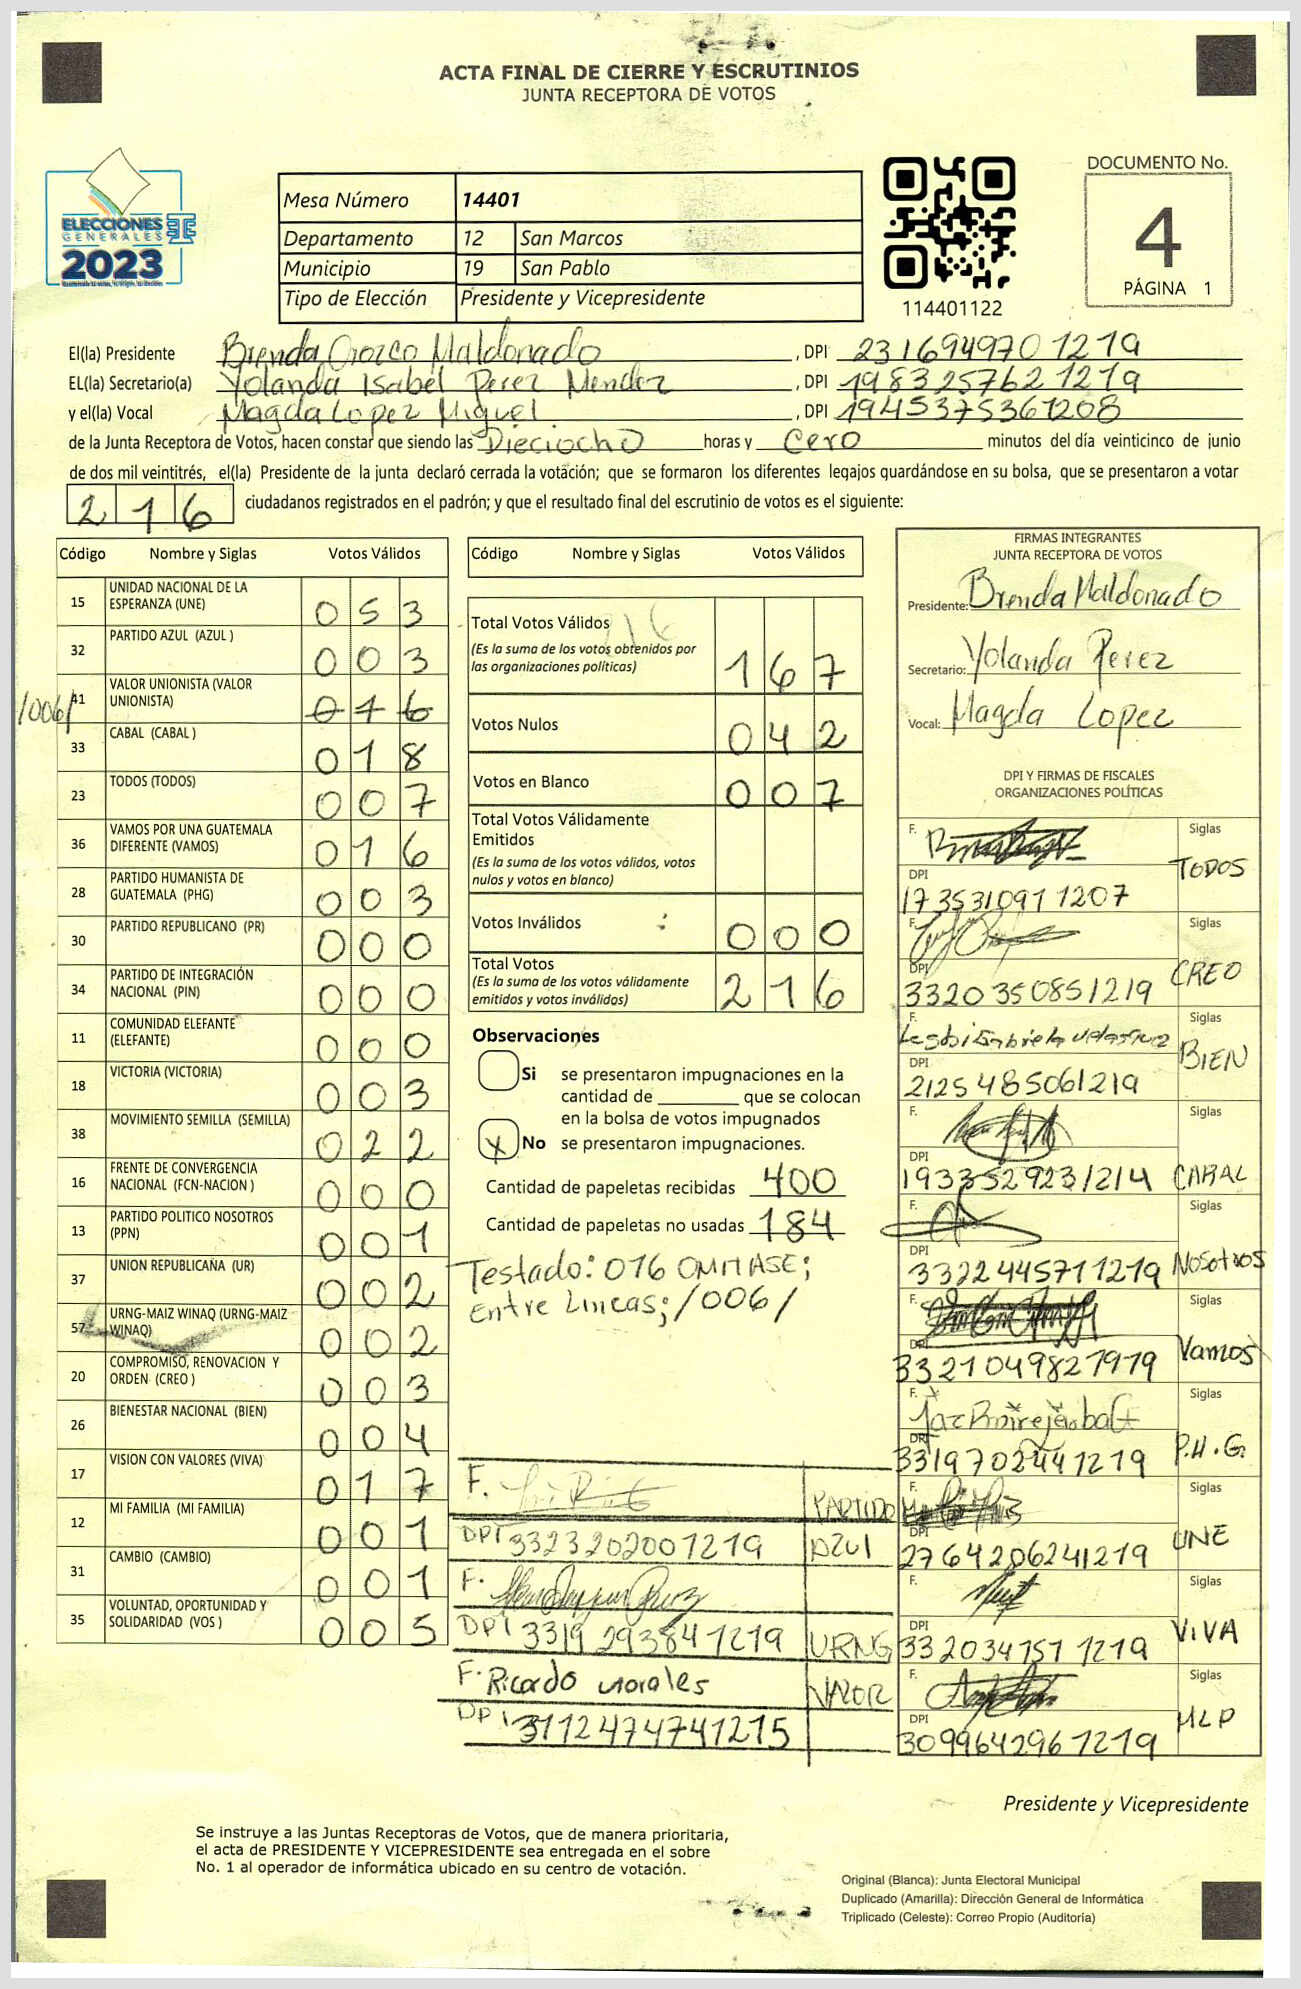 ACTA FINAL DE CIERRE Y ESCRUTINIOS
JUNTA RECEPTORA DE VOTOS
ELECCIONES
GENERALES
2023
Mesa Número 14401
Departamento 12 San Marcos
Municipio 19 San Pablo
Tipo de Elección Presidente y Vicepresidente
114401122
DOCUMENTO No.
4
PÁGINA 1
El(la) Presidente Brenda Orozco Maldonado, DPI 2316949701219
EL(la) Secretario(a) Yolanda Isabel Perez Mendez, DPI 1983257621219
y el(la) Vocal Magda Lopez Miguel, DPI 1945375361208
de la Junta Receptora de Votos, hacen constar que siendo las Dieciocho horas y Cero minutos del día veinticinco de junio
de dos mil veintitrés, el(la) Presidente de la junta declaró cerrada la votación; que se formaron los diferentes legajos guardándose en su bolsa, que se presentaron a votar
216 ciudadanos registrados en el padrón; y que el resultado final del escrutinio de votos es el siguiente:
Código Nombre y Siglas Votos Válidos
15 UNIDAD NACIONAL DE LA ESPERANZA (UNE) 053
32 PARTIDO AZUL (AZUL ) 003
/006/ 41 VALOR UNIONISTA (VALOR UNIONISTA) 016
33 CABAL (CABAL ) 018
23 TODOS (TODOS) 007
36 VAMOS POR UNA GUATEMALA DIFERENTE (VAMOS) 016
28 PARTIDO HUMANISTA DE GUATEMALA (PHG) 003
30 PARTIDO REPUBLICANO (PR) 000
34 PARTIDO DE INTEGRACIÓN NACIONAL (PIN) 000
11 COMUNIDAD ELEFANTE (ELEFANTE) 000
18 VICTORIA (VICTORIA) 003
38 MOVIMIENTO SEMILLA (SEMILLA) 022
16 FRENTE DE CONVERGENCIA NACIONAL (FCN-NACION ) 000
13 PARTIDO POLITICO NOSOTROS (PPN) 001
37 UNION REPUBLICANA (UR) 002
57 URNG-MAIZ WINAQ (URNG-MAIZ WINAQ) 002
20 COMPROMISO, RENOVACION Y ORDEN (CREO ) 003
26 BIENESTAR NACIONAL (BIEN) 004
17 VISION CON VALORES (VIVA) 017
12 MI FAMILIA (MI FAMILIA) 001
31 CAMBIO (CAMBIO) 001
35 VOLUNTAD, OPORTUNIDAD Y SOLIDARIDAD (VOS ) 005
Código Nombre y Siglas Votos Válidos
Total Votos Válidos 167
(Es la suma de los votos obtenidos por
las organizaciones políticas)
Votos Nulos 042
Votos en Blanco 007
Total Votos Válidamente
Emitidos
(Es la suma de los votos válidos, votos
nulos y votos en blanco)
Votos Inválidos 000
Total Votos 216
(Es la suma de los votos válidamente
emitidos y votos inválidos)
Observaciones
Si se presentaron impugnaciones en la
cantidad de ________ que se colocan
en la bolsa de votos impugnados
X No se presentaron impugnaciones.
Cantidad de papeletas recibidas 400
Cantidad de papeletas no usadas 184
Testado: 016 OMITASE;
Entre Lineas; /006/
F.
PARTIDO
DPI 3323202001219 AZUl
F.
DPI 3319293841219 URNG
F. Ricardo Morales VALOR
DPI 3112474741215
FIRMAS INTEGRANTES
JUNTA RECEPTORA DE VOTOS
Presidente: Brenda Maldonado
Secretario: Yolanda Perez
Vocal: Magda Lopez
DPI Y FIRMAS DE FISCALES
ORGANIZACIONES POLÍTICAS
F. Siglas
DPI TODOS
1735310911207
F. Siglas
DPI CREO
3320350851219
F. Siglas
DPI BIEN
2125485061219
F. Siglas
DPI
1933529231214 CABAL
F. Siglas
DPI
3322445711219 NOSOTROS
F. Siglas
DPI Vamos
3321049821919
F. Siglas
DPI
3319702441219 P.H.G.
F. Siglas
DPI UNE
2764206241219
F. Siglas
DPI VIVA
3320341511219
F. Siglas
DPI MLP
3099642961219
Presidente y Vicepresidente
Se instruye a las Juntas Receptoras de Votos, que de manera prioritaria,
el acta de PRESIDENTE Y VICEPRESIDENTE sea entregada en el sobre
No. 1 al operador de informática ubicado en su centro de votación.
Original (Blanca): Junta Electoral Municipal
Duplicado (Amarilla): Dirección General de Informática
Triplicado (Celeste): Correo Propio (Auditoría)